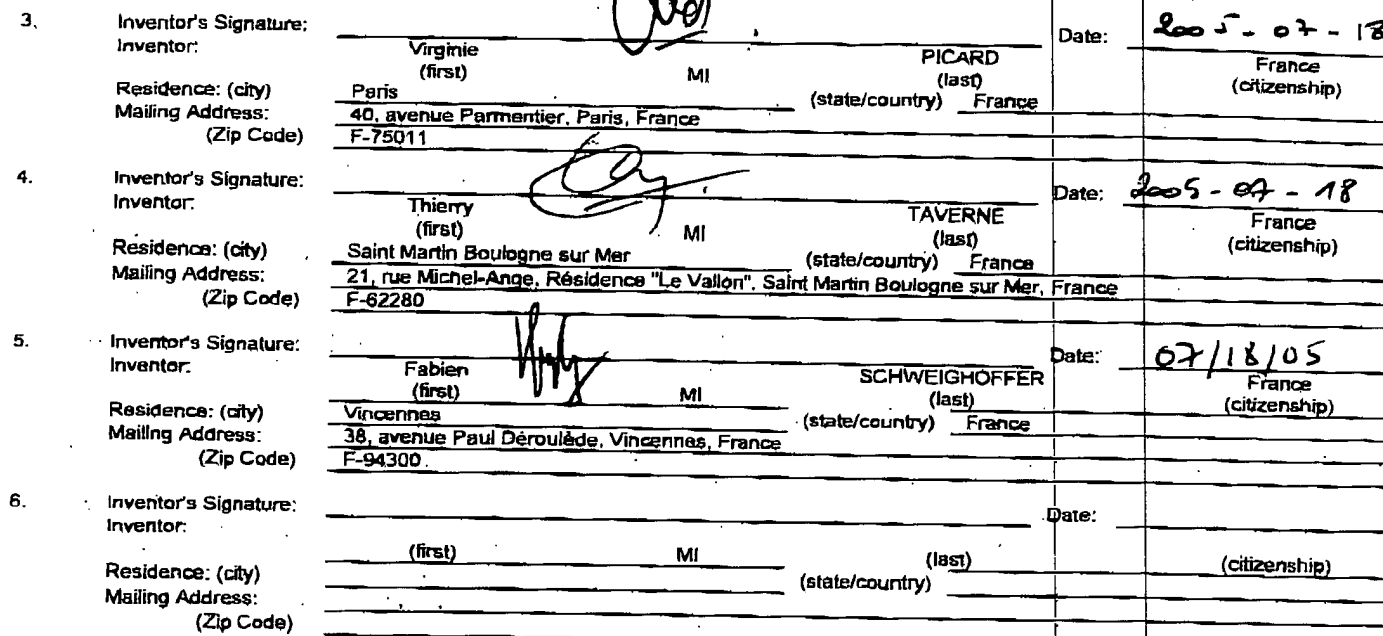 3. Inventor's Signature: Date: 2005-07-18
Inventor: Virginie PICARD France
(first) MI (last) (citizenship)
Residence: (city) Paris (state/country) France
Mailing Address: 40, avenue Parmentier, Paris, France
(Zip Code) F-75011
4. Inventor's Signature: Date: 2005-07-18
Inventor: Thierry TAVERNE France
(first) MI (last) (citizenship)
Residence: (city) Saint Martin Boulogne sur Mer (state/country) France
Mailing Address: 21, rue Michel-Ange, Résidence "Le Vallon", Saint Martin Boulogne sur Mer, France
(Zip Code) F-62280
5. Inventor's Signature: Date: 07/18/05
Inventor: Fabien SCHWEIGHOFFER France
(first) MI (last) (citizenship)
Residence: (city) Vincennes (state/country) France
Mailing Address: 38, avenue Paul Déroulède, Vincennes, France
(Zip Code) F-94300
6. Inventor's Signature: Date:
Inventor:
(first) MI (last) (citizenship)
Residence: (city) (state/country)
Mailing Address:
(Zip Code)